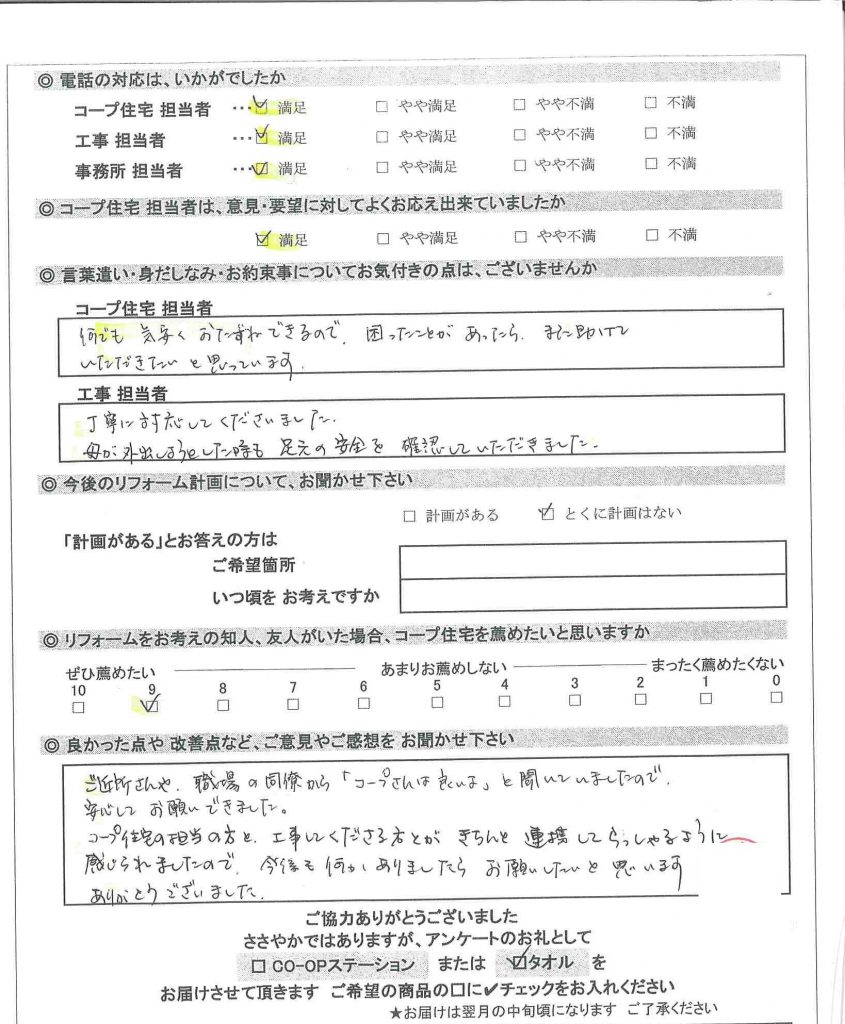 ◎ 電話の対応は、いかがでしたか
コープ住宅 担当者 …☑ 満足 □ やや満足 □ やや不満 □ 不満
工事 担当者 …☑ 満足 □ やや満足 □ やや不満 □ 不満
事務所 担当者 …☑ 満足 □ やや満足 □ やや不満 □ 不満
◎ コープ住宅 担当者は、意見・要望に対してよくお応え出来ていましたか
☑ 満足 □ やや満足 □ やや不満 □ 不満
◎ 言葉遣い・身だしなみ・お約束事についてお気付きの点は、ございませんか
コープ住宅 担当者
何でも 気安く おたずねできるので、困ったことが あったら、また助けて
いただきたい と思っています。
工事 担当者
丁寧に対応してくださいました。
母が外出しようとした時も 足元の安全を 確認していただきました。
◎ 今後のリフォーム計画について、お聞かせ下さい
□ 計画がある ☑ とくに計画はない
「計画がある」とお答えの方は
ご希望箇所
いつ頃を お考えですか
◎ リフォームをお考えの知人、友人がいた場合、コープ住宅を薦めたいと思いますか
ぜひ薦めたい あまりお薦めしない まったく薦めたくない
10 9 8 7 6 5 4 3 2 1 0
□ ☑ □ □ □ □ □ □ □ □ □
◎ 良かった点や 改善点など、ご意見やご感想を お聞かせ下さい
ご近所さんや、職場の同僚から「コープさんは良いよ」と聞いていましたので、
安心して お願いできました。
コープ住宅の担当の方と、工事してくださる方とが きちんと 連携してらっしゃるように
感じられましたので、今後も何かありましたら お願いしたいと 思います
ありがとうございました。
ご協力ありがとうございました
ささやかではありますが、アンケートのお礼として
□ CO-OPステーション または ☑タオル を
お届けさせて頂きます ご希望の商品の□に✔チェックをお入れください
★お届けは翌月の中旬頃になります ご了承ください